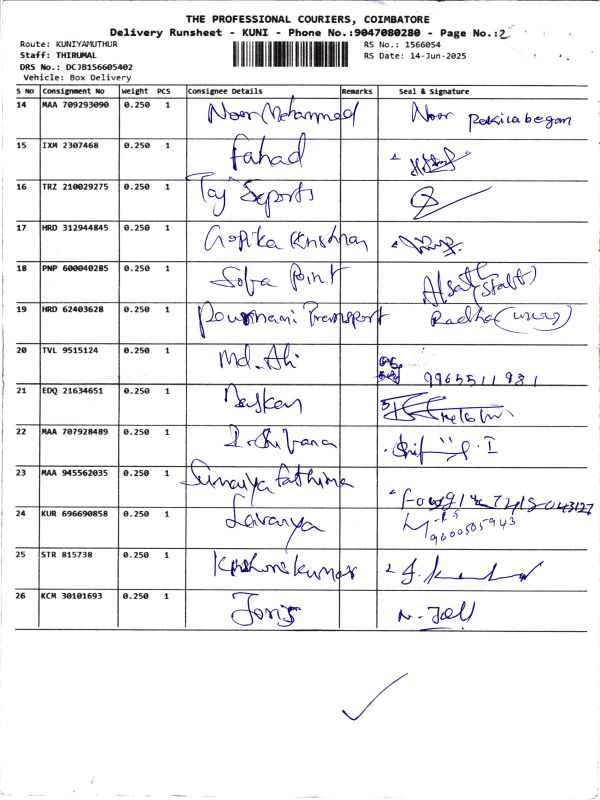 THE PROFESSIONAL COURIERS, COIMBATORE
Delivery Runsheet - KUNI - Phone No.:9047080280 - Page No.:2
Route: KUNIYAMUTHUR
RS No.: 1566054
Staff: THIRUMAL
RS Date: 14-Jun-2025
DRS No.: DCJB156605402
Vehicle: Box Delivery
S No Consignment No Weight PCS Consignee Details Remarks Seal & Signature
14 MAA 709293090 0.250 1 Noor Mohammed Noor
15 IXM 2307468 0.250 1 Fahad
16 TRZ 210029275 0.250 1 Taj
17 HRD 312944845 0.250 1 Gopika Krishnan
18 PNP 600040285 0.250 1 Sofa Point
19 HRD 62403628 0.250 1 Pournami Transport Radha
20 TVL 9515124 0.250 1 Md. Ali 9965511981
21 EDQ 21634651 0.250 1
22 MAA 707928489 0.250 1
23 MAA 945562035 0.250 1 Sumaiya Fathima
24 KUR 696690858 0.250 1 Lavanya 9600505943
25 STR 815738 0.250 1
26 KCM 30101693 0.250 1